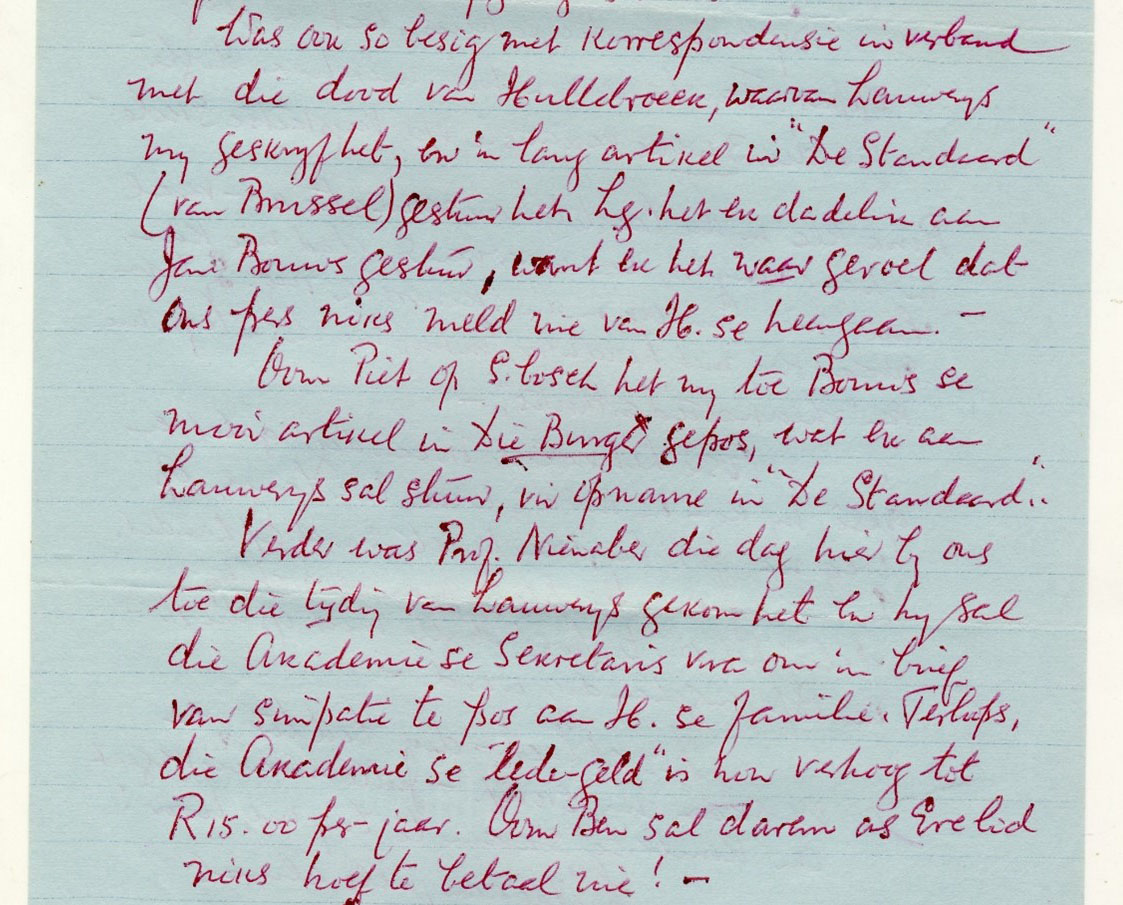 Was ook so besig met korrespondensie in verband
met die dood van Hullebroeck, waarvan Lauwerys
my geskryf het, en 'n lang artikel in "De Standaard"
(van Brussel) gestuur het. Lg. het ek dadelik aan
Jan Bouws gestuur, want ek het naar gevoel dat
ons pers niks meld nie van H. se heengaan. –
Oom Piet op S.bosch het my toe Bouws se
mooi artikel in Die Burger gepos, wat ek aan
Lauwerys sal stuur, vir opname in "De Standaard".
Verder was Prof. Nienaber die dag hier by ons
toe die tyding van Lauwerys gekom het en hy sal
die Akademie se Sekretaris vra om 'n brief
van simpatie te pos aan H. se familie. Terloops,
die Akademie se "lede-geld" is nou verhoog tot
R15.00 per jaar. Oom Ben sal darem as Erelid
niks hoef te betaal nie! –